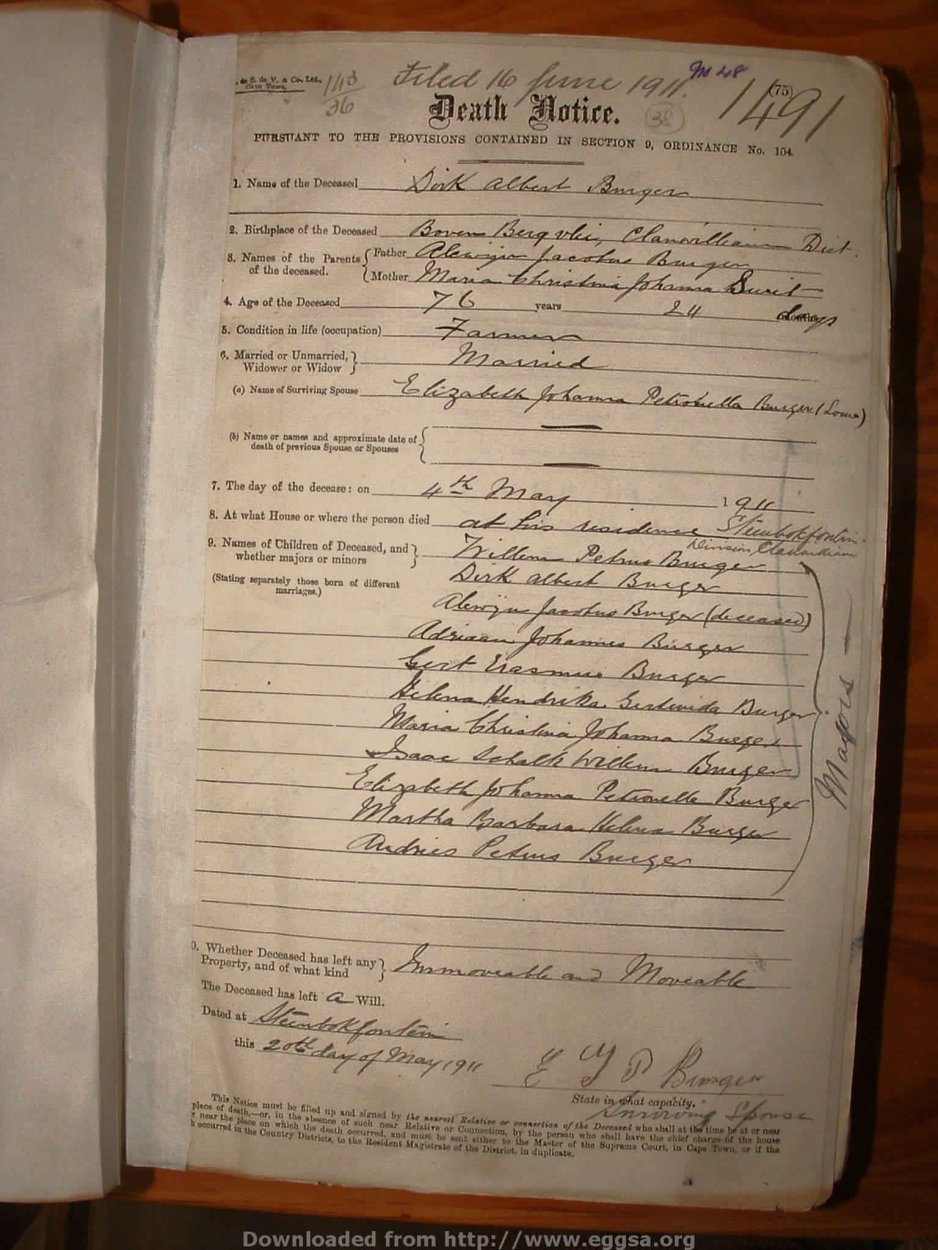 . de S. de V. & Co., Ltd.,
Cape Town.
143
36
Filed 16 June 1911.
(75)
1491
Death Notice.
38
PURSUANT TO THE PROVISIONS CONTAINED IN SECTION 9, ORDINANCE No. 104.
1. Name of the Deceased Dirk Albert Burger
2. Birthplace of the Deceased Boven Bergvlei, Clanwilliam Dist.
3. Names of the Parents of the deceased. { Father Alewijn Jacobus Burger
Mother Maria Christina Johanna
4. Age of the Deceased 76 years 24 days
5. Condition in life (occupation) Farmer
6. Married or Unmarried, Widower or Widow } Married
(a) Name of Surviving Spouse Elizabeth Johanna Petronella Burger (Louw)
(b) Name or names and approximate date of death of previous Spouse or Spouses {
7. The day of the decease: on 4th May 1911
8. At what House or where the person died at his residence Steenbokfontein
Division Clanwilliam
9. Names of Children of Deceased, and whether majors or minors } Willem Petrus Burger
(Stating separately those born of different marriages.)
Dirk Albert Burger
Alewijn Jacobus Burger (deceased)
Adriaan Johannes Burger
Gert Erasmus Burger
Helena Hendrika Gertruida Burger
Maria Christina Johanna Burger
Isaac Schalk Willem Burger
Elizabeth Johanna Petronella Burger
Martha Barbara Helena Burger
Andries Petrus Burger
Majors
0. Whether Deceased has left any Property, and of what kind } Immoveable and Moveable
The Deceased has left a Will.
Dated at Steenbokfontein
this 20th day of May 1911
E Y P Burger
State in what capacity.
Surviving Spouse
This Notice must be filled up and signed by the nearest Relative or connection of the Deceased who shall at the time be at or near
place of death,—or, in the absence of such near Relative or Connection, by the person who shall have the chief charge of the house
r near the place on which the death occurred, and must be sent either to the Master of the Supreme Court, in Cape Town, or if the
h occurred in the Country Districts, to the Resident Magistrate of the District, in duplicate.
Downloaded from http://www.eggsa.org